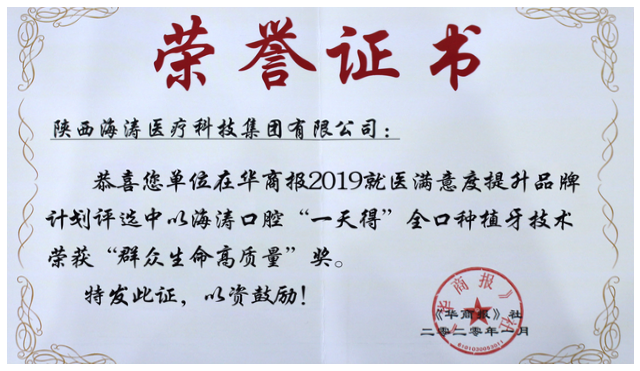 荣誉证书
陕西海涛医疗科技集团有限公司：
恭喜您单位在华商报2019就医满意度提升品牌
计划评选中以海涛口腔“一天得”全口种植牙技术
荣获“群众生命高质量”奖。
特发此证，以资鼓励！
《华商报》社
《华商报》社
二零二零年一月